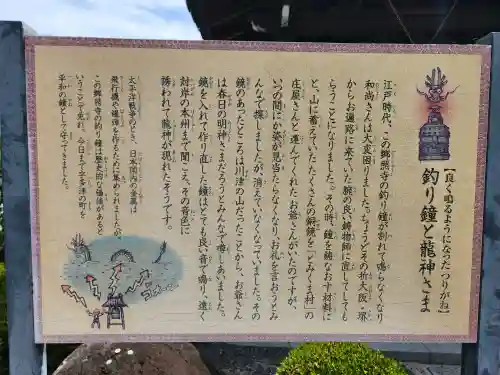 【良く鳴るようになったつりがね】
釣り鐘と龍神さま
江戸時代、この郷照寺の釣り鐘が割れて鳴らなくなり
和尚さんは大変困りました。ちょうどその頃大阪、堺
からお遍路に来ていた腕の良い鋳物師に直してしても
らうことになりました。その時、鐘を鋳なおす材料に
と、山に蓄えていたたくさんの銅鏡を「しみくま村」の
庄屋さんと運んでくれたお爺さんがいたのですが、
いつの間にか姿が見当たらなくなり、お礼を言おうとみ
んなで捜しましたが、消えていなくなっていました。その
鏡のあったところは川津の山だったことから、お爺さん
は春日の明神さまだろうとみんなで噂しあいました。
鏡を入れて作り直した鐘はとても良い音で鳴り、遠く
対岸の本州まで聞こえ、その音色に
誘われて龍神が現れたそうです。
太平洋戦争のとき、日本国内の金属は
飛行機や爆弾を作るために集められましたが、
この郷照寺の釣り鐘は歴史的な価値があると
いうことで免れ、今日まで宇多津の町を
平和の鐘として守ってきました。
ゴーン